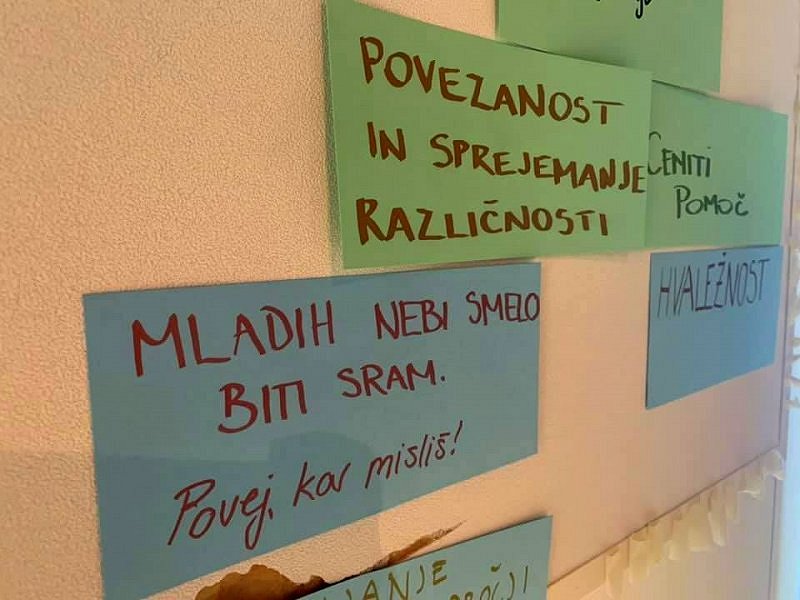 POVEZANOST
IN SPREJEMANJE
RAZLIČNOSTI
CENITI
POMOČ
HVALEŽNOST
MLADIH NEBI SMELO
BITI SRAM.
Povej, kar misliš!